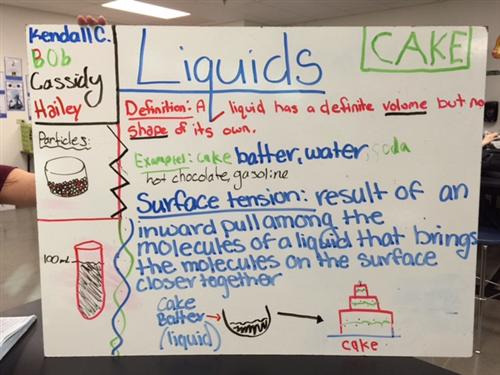 Kendall C.
Bob
Cassidy
Hailey
Liquids
CAKE
Definition: A liquid has a definite volume but no
shape of its own.
Particles:
Examples: cake batter, water, soda
hot chocolate, gasoline
Surface tension: result of an
inward pull among the
molecules of a liquid that brings
the molecules on the surface
closer together
100mL
Cake
Batter
(liquid)
cake